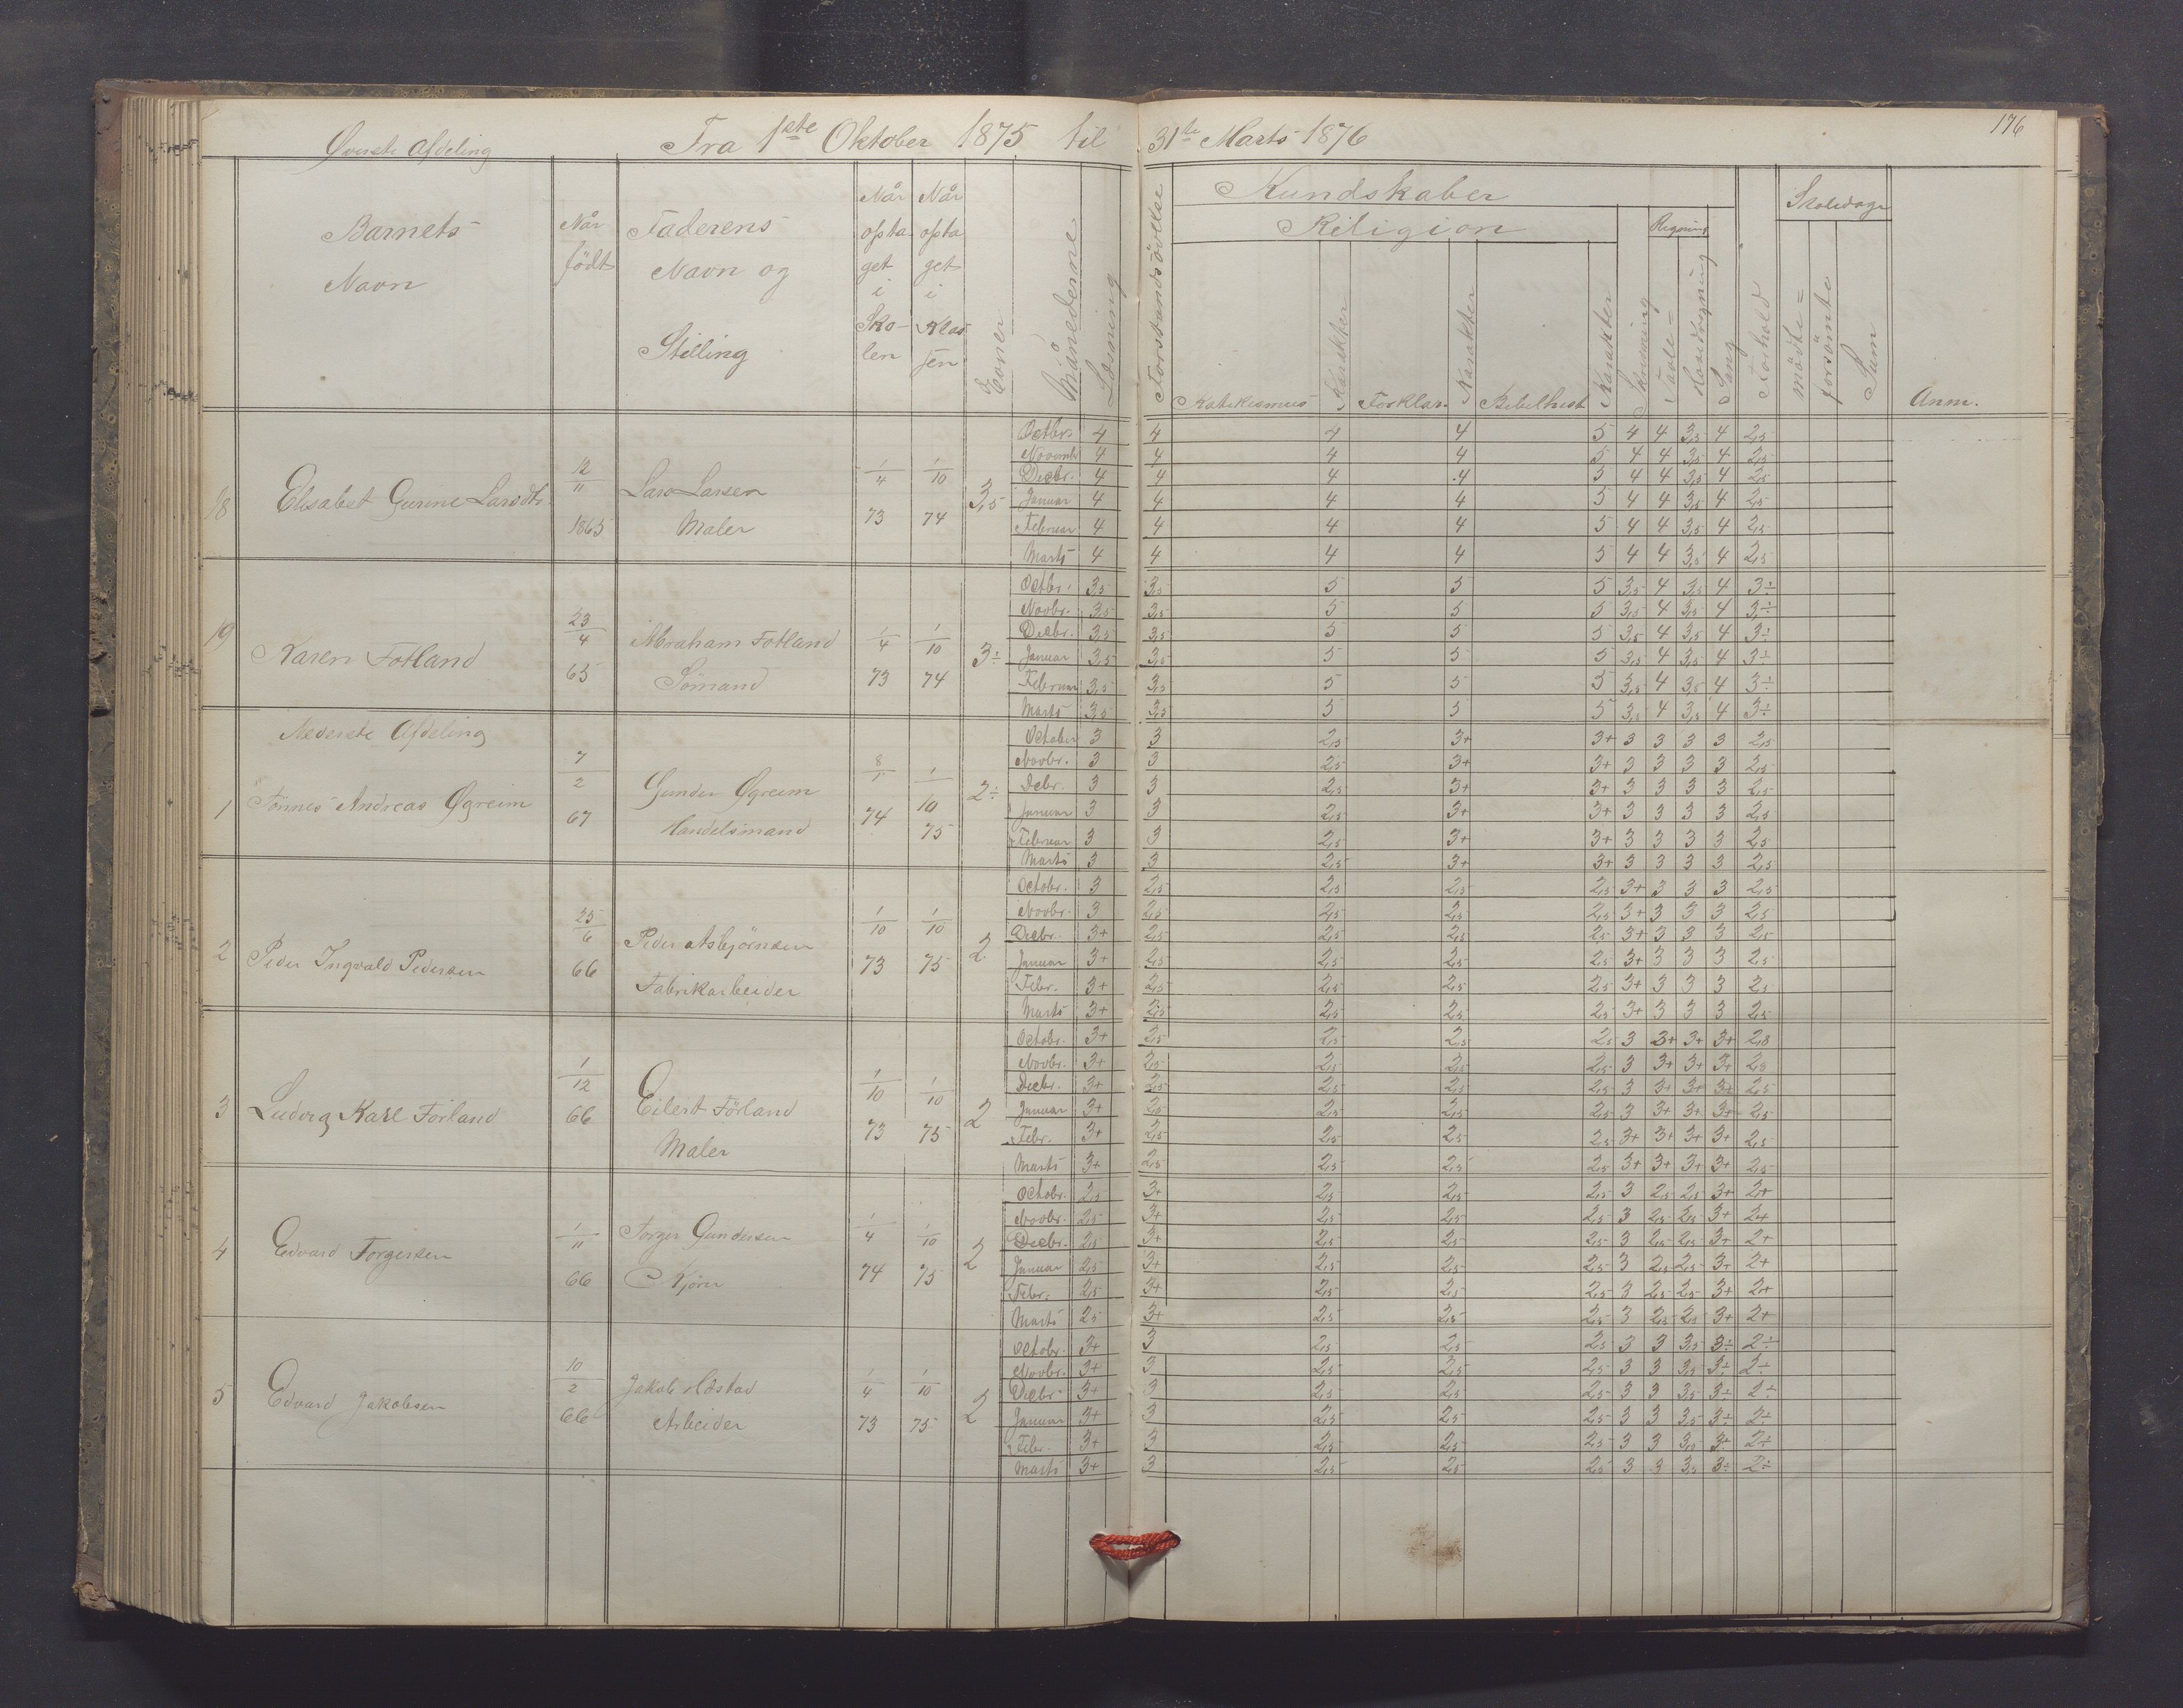 176
Øverste Afdeling Fra 1ste Oktober 1875 til 31te Marts 1876
Barnets Navn
Når født
Faderens Navn og Stilling
Når optaget i Skolen
Når optaget i Klassen
Evner
Månederne
Læsning
Forstandsövelse
Kundskaber
Religion
Katekismus Karakter Forklar. Karakter Bibelhist. Karakter
Skrivning
Regning
Tavle= Hovedregning
Sang
Forhold
Skoledage
mödte= forsömte Sum
Anm.
18 Elisabet Gurine Larsdtr. 12/11 1865 Lars Larsen Maler 1/4 73 1/10 74 3,5
Octbr. 4 4 4 4 5 4 4 3,5 4 2,5
Novembr 4 4 4 4 5 4 4 3,5 4 2,5
Decbr. 4 4 4 4 5 4 4 3,5 4 2,5
Januar 4 4 4 4 5 4 4 3,5 4 2,5
Februar 4 4 4 4 5 4 4 3,5 4 2,5
Marts 4 4 4 4 5 4 4 3,5 4 2,5
19 Karen Fotland 23/4 65 Abraham Fotland Sömand 1/4 73 1/10 74 3÷
Octbr. 3,5 3,5 5 5 5 3,5 4 3,5 4 3÷
Novbr. 3,5 3,5 5 5 5 3,5 4 3,5 4 3÷
Decbr. 3,5 3,5 5 5 5 3,5 4 3,5 4 3÷
Januar 3,5 3,5 5 5 5 3,5 4 3,5 4 3÷
Februar 3,5 3,5 5 5 5 3,5 4 3,5 4 3÷
Marts 3,5 3,5 5 5 5 3,5 4 3,5 4 3÷
Nederste Afdeling
1 Tönnes Andreas Øgreim 7/2 67 Gunder Øgreim Handelsmand 8/1 74 1/10 75 2÷
October 3 3 2,5 3+ 3+ 3 3 3 3 2,5
Novbr. 3 3 2,5 3+ 3+ 3 3 3 3 2,5
Decbr. 3 3 2,5 3+ 3+ 3 3 3 3 2,5
Januar 3 3 2,5 3+ 3+ 3 3 3 3 2,5
Februar 3 3 2,5 3+ 3+ 3 3 3 3 2,5
Marts 3 3 2,5 3+ 3+ 3 3 3 3 2,5
2 Peder Ingvald Pedersen 25/6 66 Peder Asbjörnsen Fabrikarbeider 1/10 73 1/10 75 2
Octobr. 3 2,5 2,5 2,5 2,5 3+ 3 3 3 2,5
Novbr. 3 2,5 2,5 2,5 2,5 3+ 3 3 3 2,5
Decbr. 3+ 2,5 2,5 2,5 2,5 3+ 3 3 3 2,5
Januar 3+ 2,5 2,5 2,5 2,5 3+ 3 3 3 2,5
Febr. 3+ 2,5 2,5 2,5 2,5 3+ 3 3 3 2,5
Marts 3+ 2,5 2,5 2,5 2,5 3+ 3 3 3 2,5
3 Ludvig Karl Förland 1/12 66 Eilert Förland Maler 1/10 73 1/10 75 2
Octobr. 3+ 2,5 2,5 2,5 2,5 3 3+ 3+ 3+ 2,5
Novbr. 3+ 2,5 2,5 2,5 2,5 3 3+ 3+ 3+ 2,5
Decbr. 3+ 2,5 2,5 2,5 2,5 3 3+ 3+ 3+ 2,5
Januar 3+ 2,5 2,5 2,5 2,5 3 3+ 3+ 3+ 2,5
Febr. 3+ 2,5 2,5 2,5 2,5 3+ 3+ 3+ 3+ 2,5
Marts 3+ 2,5 2,5 2,5 2,5 3+ 3+ 3+ 3+ 2,5
4 Edvard Torgersen 1/11 66 Torger Gundersen Kjörn 1/4 74 1/10 75 2
Octobr. 2,5 3+ 2,5 2,5 2,5 3 2,5 2,5 3+ 2+
Novbr. 2,5 3+ 2,5 2,5 2,5 3 2,5 2,5 3+ 2+
Decbr. 2,5 3+ 2,5 2,5 2,5 3 2,5 2,5 3+ 2+
Januar 2,5 3+ 2,5 2,5 2,5 3 2,5 2,5 3+ 2+
Febr. 2,5 3+ 2,5 2,5 2,5 3 2,5 2,5 3+ 2+
Marts 2,5 3+ 2,5 2,5 2,5 3 2,5 2,5 3+ 2+
5 Edvard Jakobsen 10/2 66 Jakob Arbeider 1/4 73 1/10 75 2
Octobr. 3+ 3 2,5 2,5 2,5 3 3 3,5 3÷ 2÷
Novbr. 3+ 3 2,5 2,5 2,5 3 3 3,5 3÷ 2÷
Decbr. 3+ 3 2,5 2,5 2,5 3 3 3,5 3÷ 2÷
Januar 3+ 3 2,5 2,5 2,5 3 3 3,5 3÷ 2÷
Febr. 3+ 3 2,5 2,5 2,5 3 3 3,5 3÷ 2÷
Marts 3+ 3 2,5 2,5 2,5 3 3 3,5 3÷ 2÷